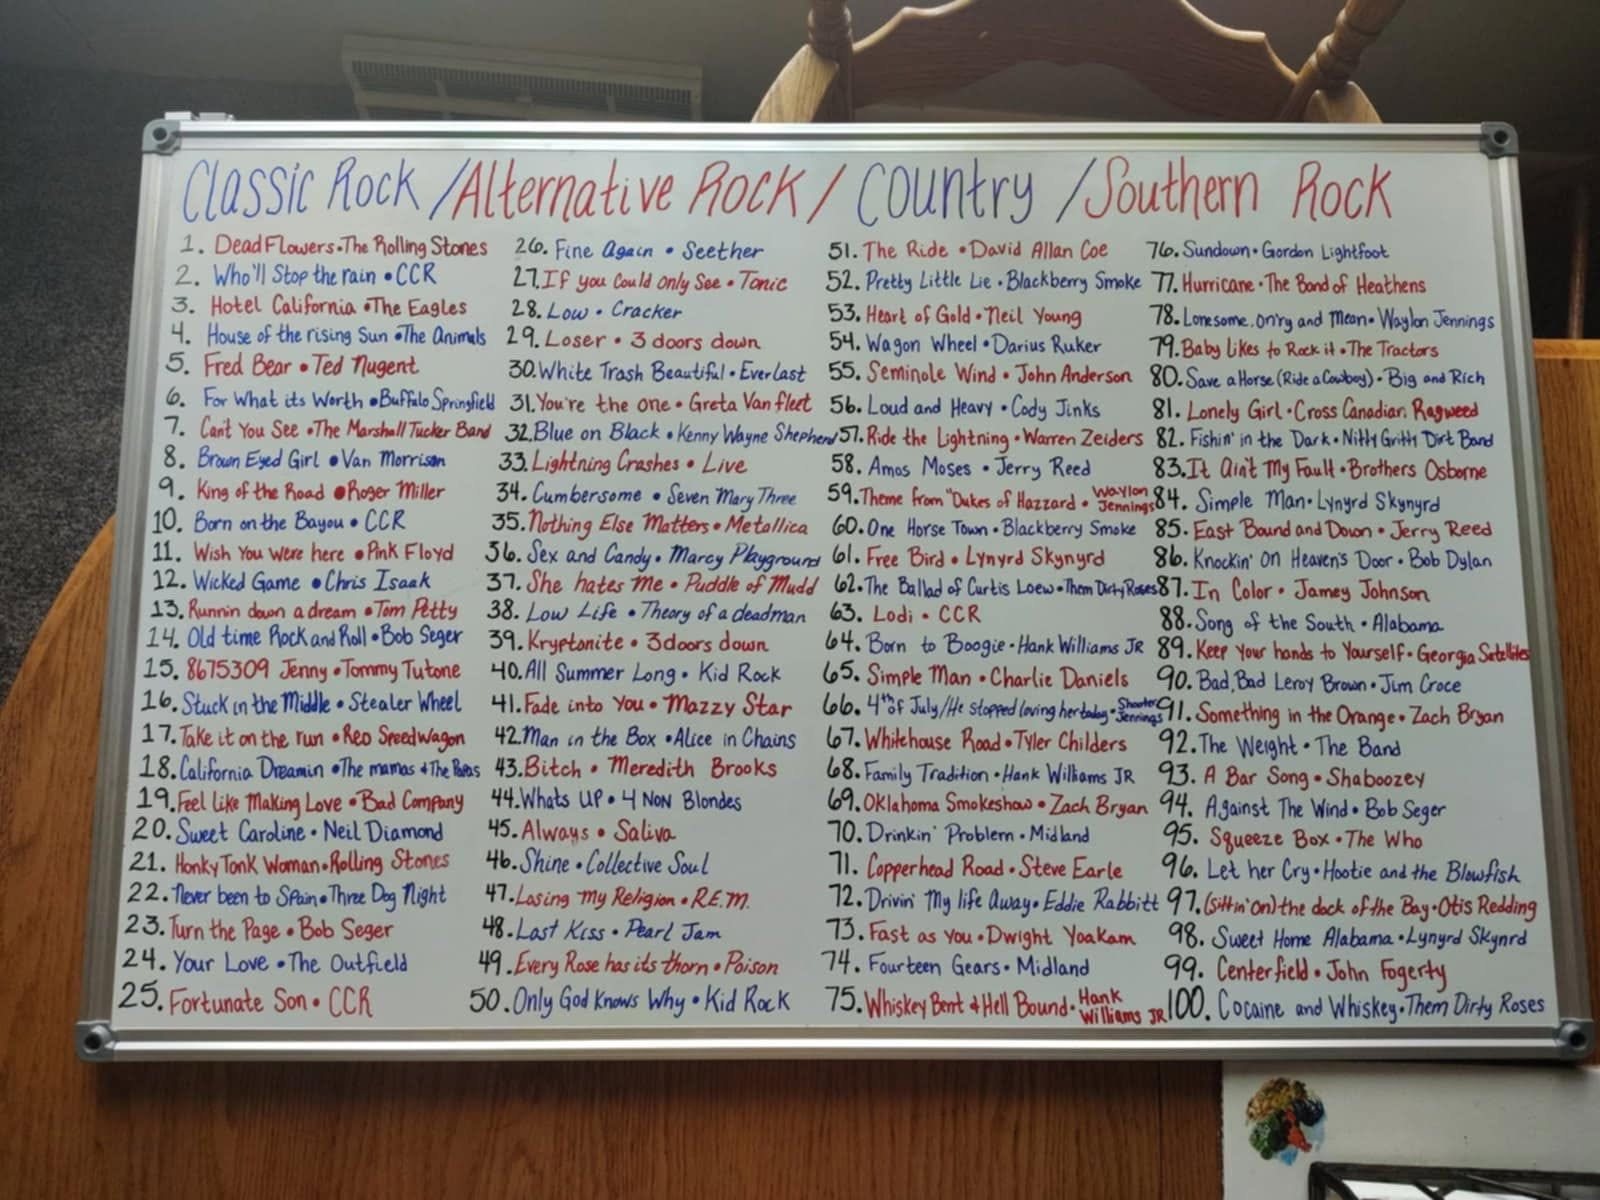 Classic Rock / Alternative Rock / Country / Southern Rock
1. Dead Flowers • The Rolling Stones
2. Who'll Stop the rain • CCR
3. Hotel California • The Eagles
4. House of the rising Sun • The Animals
5. Fred Bear • Ted Nugent
6. For What its Worth • Buffalo Springfield
7. Can't You See • The Marshall Tucker Band
8. Brown Eyed Girl • Van Morrison
9. King of the Road • Roger Miller
10. Born on the Bayou • CCR
11. Wish You were here • Pink Floyd
12. Wicked Game • Chris Isaak
13. Runnin down a dream • Tom Petty
14. Old time Rock and Roll • Bob Seger
15. 8675309 Jenny • Tommy Tutone
16. Stuck in the Middle • Stealer Wheel
17. Take it on the run • Reo Speedwagon
18. California Dreamin • The mamas + The Papas
19. Feel like Making Love • Bad Company
20. Sweet Caroline • Neil Diamond
21. Honky Tonk Woman • Rolling Stones
22. Never been to Spain • Three Dog Night
23. Turn the Page • Bob Seger
24. Your Love • The Outfield
25. Fortunate Son • CCR
26. Fine Again • Seether
27. If you Could only See • Tonic
28. Low • Cracker
29. Loser • 3 doors down
30. White Trash Beautiful • Everlast
31. You're the one • Greta Van fleet
32. Blue on Black • Kenny Wayne Shepherd
33. Lightning Crashes • Live
34. Cumbersome • Seven Mary Three
35. Nothing Else Matters • Metallica
36. Sex and Candy • Marcy Playground
37. She hates me • Puddle of Mudd
38. Low Life • Theory of a deadman
39. Kryptonite • 3 doors down
40. All Summer Long • Kid Rock
41. Fade into You • Mazzy Star
42. Man in the Box • Alice in Chains
43. Bitch • Meredith Brooks
44. Whats UP • 4 Non Blondes
45. Always • Saliva
46. Shine • Collective Soul
47. Losing my Religion • R.E.M.
48. Last Kiss • Pearl Jam
49. Every Rose has its thorn • Poison
50. Only God Knows Why • Kid Rock
51. The Ride • David Allan Coe
52. Pretty Little Lie • Blackberry Smoke
53. Heart of Gold • Neil Young
54. Wagon Wheel • Darius Ruker
55. Seminole Wind • John Anderson
56. Loud and Heavy • Cody Jinks
57. Ride the Lightning • Warren Zeiders
58. Amos Moses • Jerry Reed
59. Theme from "Dukes of Hazzard • Waylon Jennings
60. One Horse Town • Blackberry Smoke
61. Free Bird • Lynyrd Skynyrd
62. The Ballad of Curtis Loew • Them Dirty Roses
63. Lodi • CCR
64. Born to Boogie • Hank Williams JR
65. Simple Man • Charlie Daniels
66. 4th of July/He stopped loving her today • Shooter Jennings
67. Whitehouse Road • Tyler Childers
68. Family Tradition • Hank Williams JR
69. Oklahoma Smokeshow • Zach Bryan
70. Drinkin' Problem • Midland
71. Copperhead Road • Steve Earle
72. Drivin' My life Away • Eddie Rabbitt
73. Fast as You • Dwight Yoakam
74. Fourteen Gears • Midland
75. Whiskey Bent + Hell Bound • Hank Williams JR
76. Sundown • Gordon Lightfoot
77. Hurricane • The Band of Heathens
78. Lonesome, On'ry and Mean • Waylon Jennings
79. Baby Likes to Rock it • The Tractors
80. Save a Horse (Ride a Cowboy) • Big and Rich
81. Lonely Girl • Cross Canadian Ragweed
82. Fishin' in the Dark • Nitty Gritty Dirt Band
83. It Ain't My Fault • Brothers Osborne
84. Simple Man • Lynyrd Skynyrd
85. East Bound and Down • Jerry Reed
86. Knockin' On Heaven's Door • Bob Dylan
87. In Color • Jamey Johnson
88. Song of the South • Alabama
89. Keep Your hands to Yourself • Georgia Satellites
90. Bad, Bad Leroy Brown • Jim Croce
91. Something in the Orange • Zach Bryan
92. The Weight • The Band
93. A Bar Song • Shaboozey
94. Against The Wind • Bob Seger
95. Squeeze Box • The Who
96. Let her Cry • Hootie and the Blowfish
97. (sittin' on) the dock of the Bay • Otis Redding
98. Sweet Home Alabama • Lynyrd Skynrd
99. Centerfield • John Fogerty
100. Cocaine and Whiskey • Them Dirty Roses